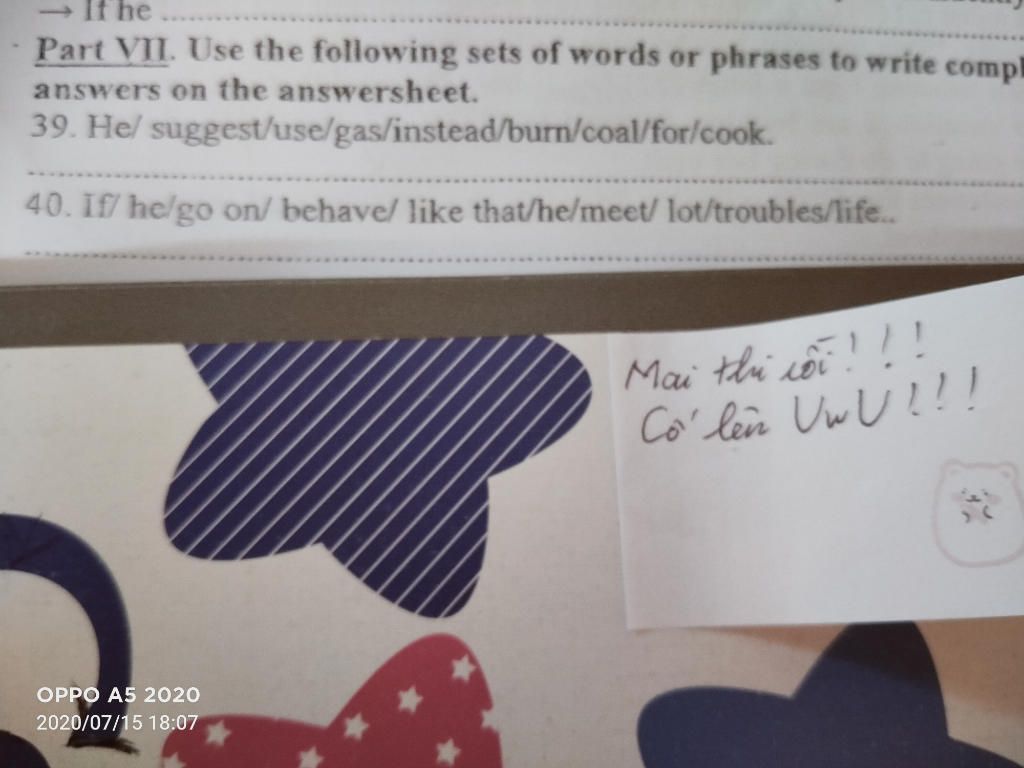 → If he ........................................
Part VII. Use the following sets of words or phrases to write
answers on the answersheet.
39. He/ suggest/use/gas/instead/burn/coal/for/cook.
40. If/ he/go on/ behave/ like that/he/meet/ lot/troubles/life..
Mai thi rồi!!!
Cố lên UwU!!!
OPPO A5 2020
2020/07/15 18:07